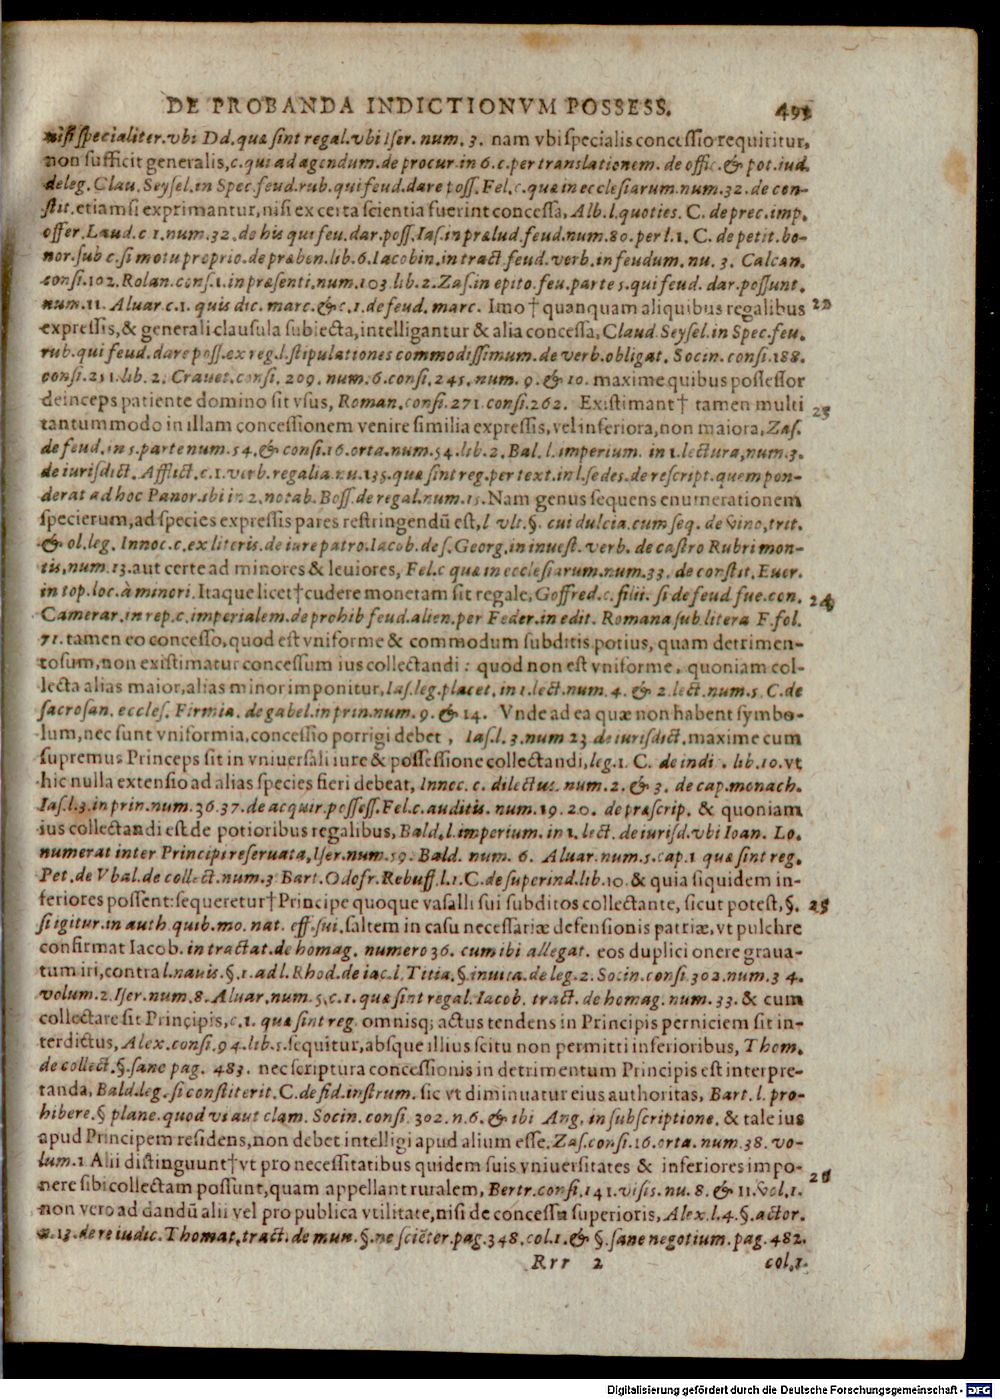 DE PROBANDA INDICTIONVM POSSESS. 491
nisi specialiter. vbi Dd. quæ sint regal. vbi Iser. num. 3. nam vbi specialis concessio requiritur,
non sufficit generalis, c. qui ad agendum. de procur. in 6. c. per translationem. de offic. & pot. iud.
deleg. Clau. Seysel. in Spec. feud. rub. qui feud. dare poss. Fel. c. quæ in ecclesiarum. num. 32. de con-
stit. etiamsi exprimantur, nisi ex certa scientia fuerint concessa, Alb. l. quoties. C. de prec. imp.
offer. Laud. c 1. num. 32. de his qui feu. dar. poss. Ias. in prælud. feud. num. 80. per l. 1. C. de petit. bo-
nor. sub c. si motu proprio. de præben. lib. 6. Iacobin. in tract. feud. verb. in feudum. nu. 3. Calcan.
consi. 102. Rolan. cons. 1. in præsenti. num. 103. lib. 2. Zas. in epito. feu. parte 5. qui feud. dar. possunt.
num. 11. Aluar. c. 1. quis dic. marc. & c. 1. de feud. marc. Imo † quanquam aliquibus regalibus 22
expressis, & generali clausula subiecta, intelligantur & alia concessa, Claud. Seysel. in Spec. feu.
rub. qui feud. dare poss. ex reg. l. stipulationes commodissimum. de verb. obligat. Socin. consi. 188.
consi. 251. lib. 2. Crauet. consi. 209. num. 6. consi. 245. num. 9. & 10. maxime quibus possessor
deinceps patiente domino sit vsus, Roman. consi. 271. consi. 262. Existimant † tamen multi 23
tantummodo in illam concessionem venire similia expressis, vel inferiora, non maiora, Zas.
de feud. in 5. parte num. 54. & consi. 16. orta. num. 54. lib. 2. Bal. l. imperium. in 1. lectura, num. 3.
de iurisdict. Afflict. c. 1. verb. regalia. nu. 135. quæ sint reg. per text. in l. sedes. de rescript. quem pon-
derat ad hoc Panor. ibi in 2. notab. Boss. de regal. num. 15. Nam genus sequens enumerationem
specierum, ad species expressis pares restringendū est, l vlt. §. cui dulcia. cum seq. de vino, trit.
& ol. leg. Innoc. c. ex literis. de iure patro. Iacob. de S. Georg. in inuest. verb. de castro Rubri mon-
tis, num. 13. aut certe ad minores & leuiores, Fel. c quæ in ecclesiarum. num. 33. de constit. Euer.
in top. loc. à minori. Itaque licet † cudere monetam sit regale, Goffred. c. filii. si de feud. fue. con. 24
Camerar. in rep. c. imperialem. de prohib feud. alien. per Feder. in edit. Romana sub litera F. fol.
71. tamen eo concesso, quod est vniforme & commodum subditis potius, quam detrimen-
tosum, non existimatur concessum ius collectandi: quod non est vniforme, quoniam col-
lecta alias maior, alias minor imponitur, Ias. leg. placet. in 1. lect. num. 4. & 2. lect. num. 5. C. de
sacrosan. eccles. Firmia. de gabel. in prin. num. 9. & 14. Vnde ad ea quæ non habent symbo-
lum, nec sunt vniformia, concessio porrigi debet, Ias. l. 3. num 23 de iurisdict. maxime cum
supremus Princeps sit in vniuersali iure & possessione collectandi, leg. 1. C. de indi . lib. 10. vt
hic nulla extensio ad alias species fieri debeat, Innec. c. dilectus. num. 2. & 3. de cap. monach.
Ias. l. 3. in prin. num. 36. 37. de acquir. possess. Fel. c. auditis. num. 19. 20. de præscrip. & quoniam
ius collectandi est de potioribus regalibus, Bald. l. imperium. in 1. lect. de iurisd. vbi Ioan. Lo.
numerat inter Principi reseruata, Iser. num. 59. Bald. num. 6. Aluar. num. 5. cap. 1 quæ sint reg.
Pet. de Vbal. de collect. num. 3 Bart. Odofr. Rebuff. l. 1. C. de superind. lib. 10. & quia siquidem in-
feriores possent: sequeretur † Principe quoque vasalli sui subditos collectante, sicut potest, §. 25
si igitur. in auth. quib. mo. nat. eff. sui. saltem in casu necessariæ defensionis patriæ, vt pulchre
confirmat Iacob. in tractat. de homag. numero 36. cum ibi allegat. eos duplici onere graua-
tum iri, contra l. nauis. §. 1. ad l. Rhod. de iac. l. Titia. §. inuita. de leg. 2. Socin. consi. 302. num. 3 4.
volum. 2. Iser. num. 8. Aluar. num. 5. c. 1. quæ sint regal. Iacob. tract. de homag. num. 33. & cum
collectare sit Principis, c. 1. quæ sint reg. omnisq; actus tendens in Principis perniciem sit in-
terdictus, Alex. consi. 94. lib. 5. sequitur, absque illius scitu non permitti inferioribus, Thom.
de collect. §. sane pag. 483. nec scriptura concessionis in detrimentum Principis est interpre-
tanda, Bald. leg. si constiterit. C. de fid. instrum. sic vt diminuatur eius authoritas, Bart. l. pro-
hibere. § plane. quod vi aut clam. Socin. consi. 302. n. 6. & ibi Ang. in subscriptione. & tale ius
apud Principem residens, non debet intelligi apud alium esse. Zas. consi. 16. orta. num. 38. vo-
lum. 1 Alii distinguunt † vt pro necessitatibus quidem suis vniuersitates & inferiores impo- 26
nere sibi collectam possunt, quam appellant ruralem, Bertr. consi. 141. visis. nu. 8. & 11. vol. 1.
non vero ad dandū alii vel pro publica vtilitate, nisi de concessu superioris, Alex. l. 4. §. actor.
n. 13. de re iudic. Thomat. tract. de mun. §. ne sciēter. pag. 348. col. 1. & §. sane negotium. pag. 482.
Rrr 2 col. 1.
Digitalisierung gefördert durch die Deutsche Forschungsgemeinschaft - DFG